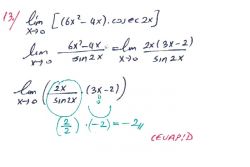 13/ lim x→0 [(6x²-4x).cosec2x]
lim x→0 6x²-4x / sin2x = lim x→0 2x(3x-2) / sin2x
lim x→0 (2x / sin2x · (3x-2))
(2/2) · (-2) = -2//
CEVAP: D